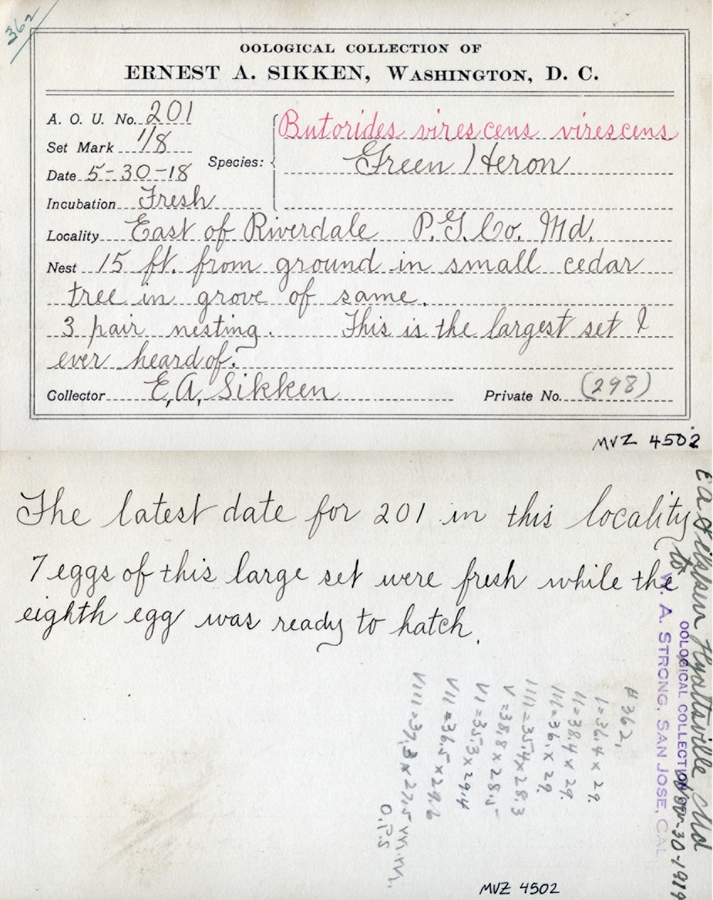 362
OOLOGICAL COLLECTION OF
ERNEST A. SIKKEN, WASHINGTON, D. C.
A. O. U. No. 201
Set Mark 1/8
Date 5-30-18
Incubation Fresh
Species: Butorides virescens virescens
Green Heron
Locality East of Riverdale P.G. Co. Md.
Nest 15 ft. from ground in small cedar
tree in grove of same.
3 pair nesting. This is the largest set I
ever heard of.
Collector E. A. Sikken
Private No. (298)
MVZ 4502
The latest date for 201 in this locality
7 eggs of this large set were fresh while the
eighth egg was ready to hatch.
E A Sikken Hyattsville Md
to
OOLOGICAL COLLECTION
W. A. STRONG, SAN JOSE, CAL
30-1919
#362.
I=36.4 x 29.
II=38.4 x 29.
III=36. x 29.
IIII=35.4 x 28.3
V=38.8 x 28.5
VI=35.3 x 29.4
VII=36.5 x 29.6
VIII=37.3 x 27.5 m.m.
O.P.S
MVZ 4502